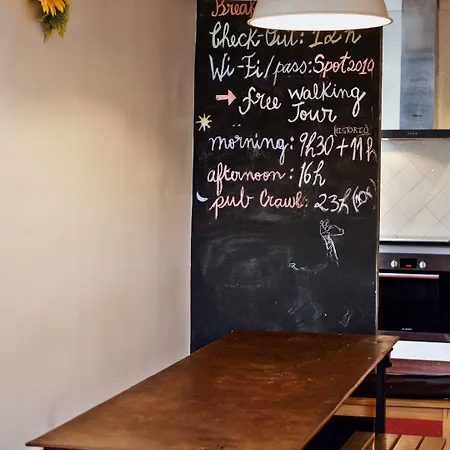 Break
Check-Out: 12h
Wi-Fi/pass: Spot2010
→ free walking
Tour
(HISTORIC)
morning: 9h30 + 11h
afternoon: 16h
pub Crawl: 23h